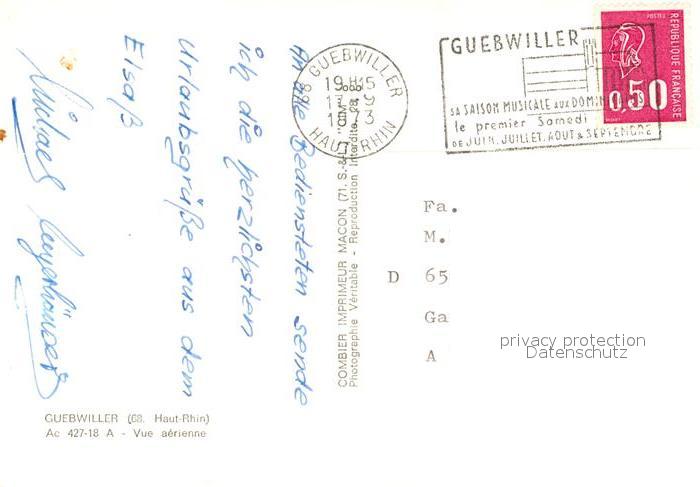 An alle Bediensteten sende
ich die herzlichsten
Urlaubsgrüße aus dem
Elsaß
Michael
GUEBWILLER
19H15
17-9
1973
HAUT-RHIN
GUEBWILLER
SA SAISON MUSICALE AUX DOMIN
le premier Samedi
DE JUIN, JUILLET, AOUT & SEPTEMBRE
POSTES
REPUBLIQUE FRANÇAISE
0,50
COMBIER IMPRIMEUR MACON (71, S.-&-L.) "CIM"
Photographie Véritable - Reproduction Interdite
Fa.
M.
D 65
Ga
A
privacy protection
Datenschutz
GUEBWILLER (68. Haut-Rhin)
Ac 427-18 A - Vue aérienne